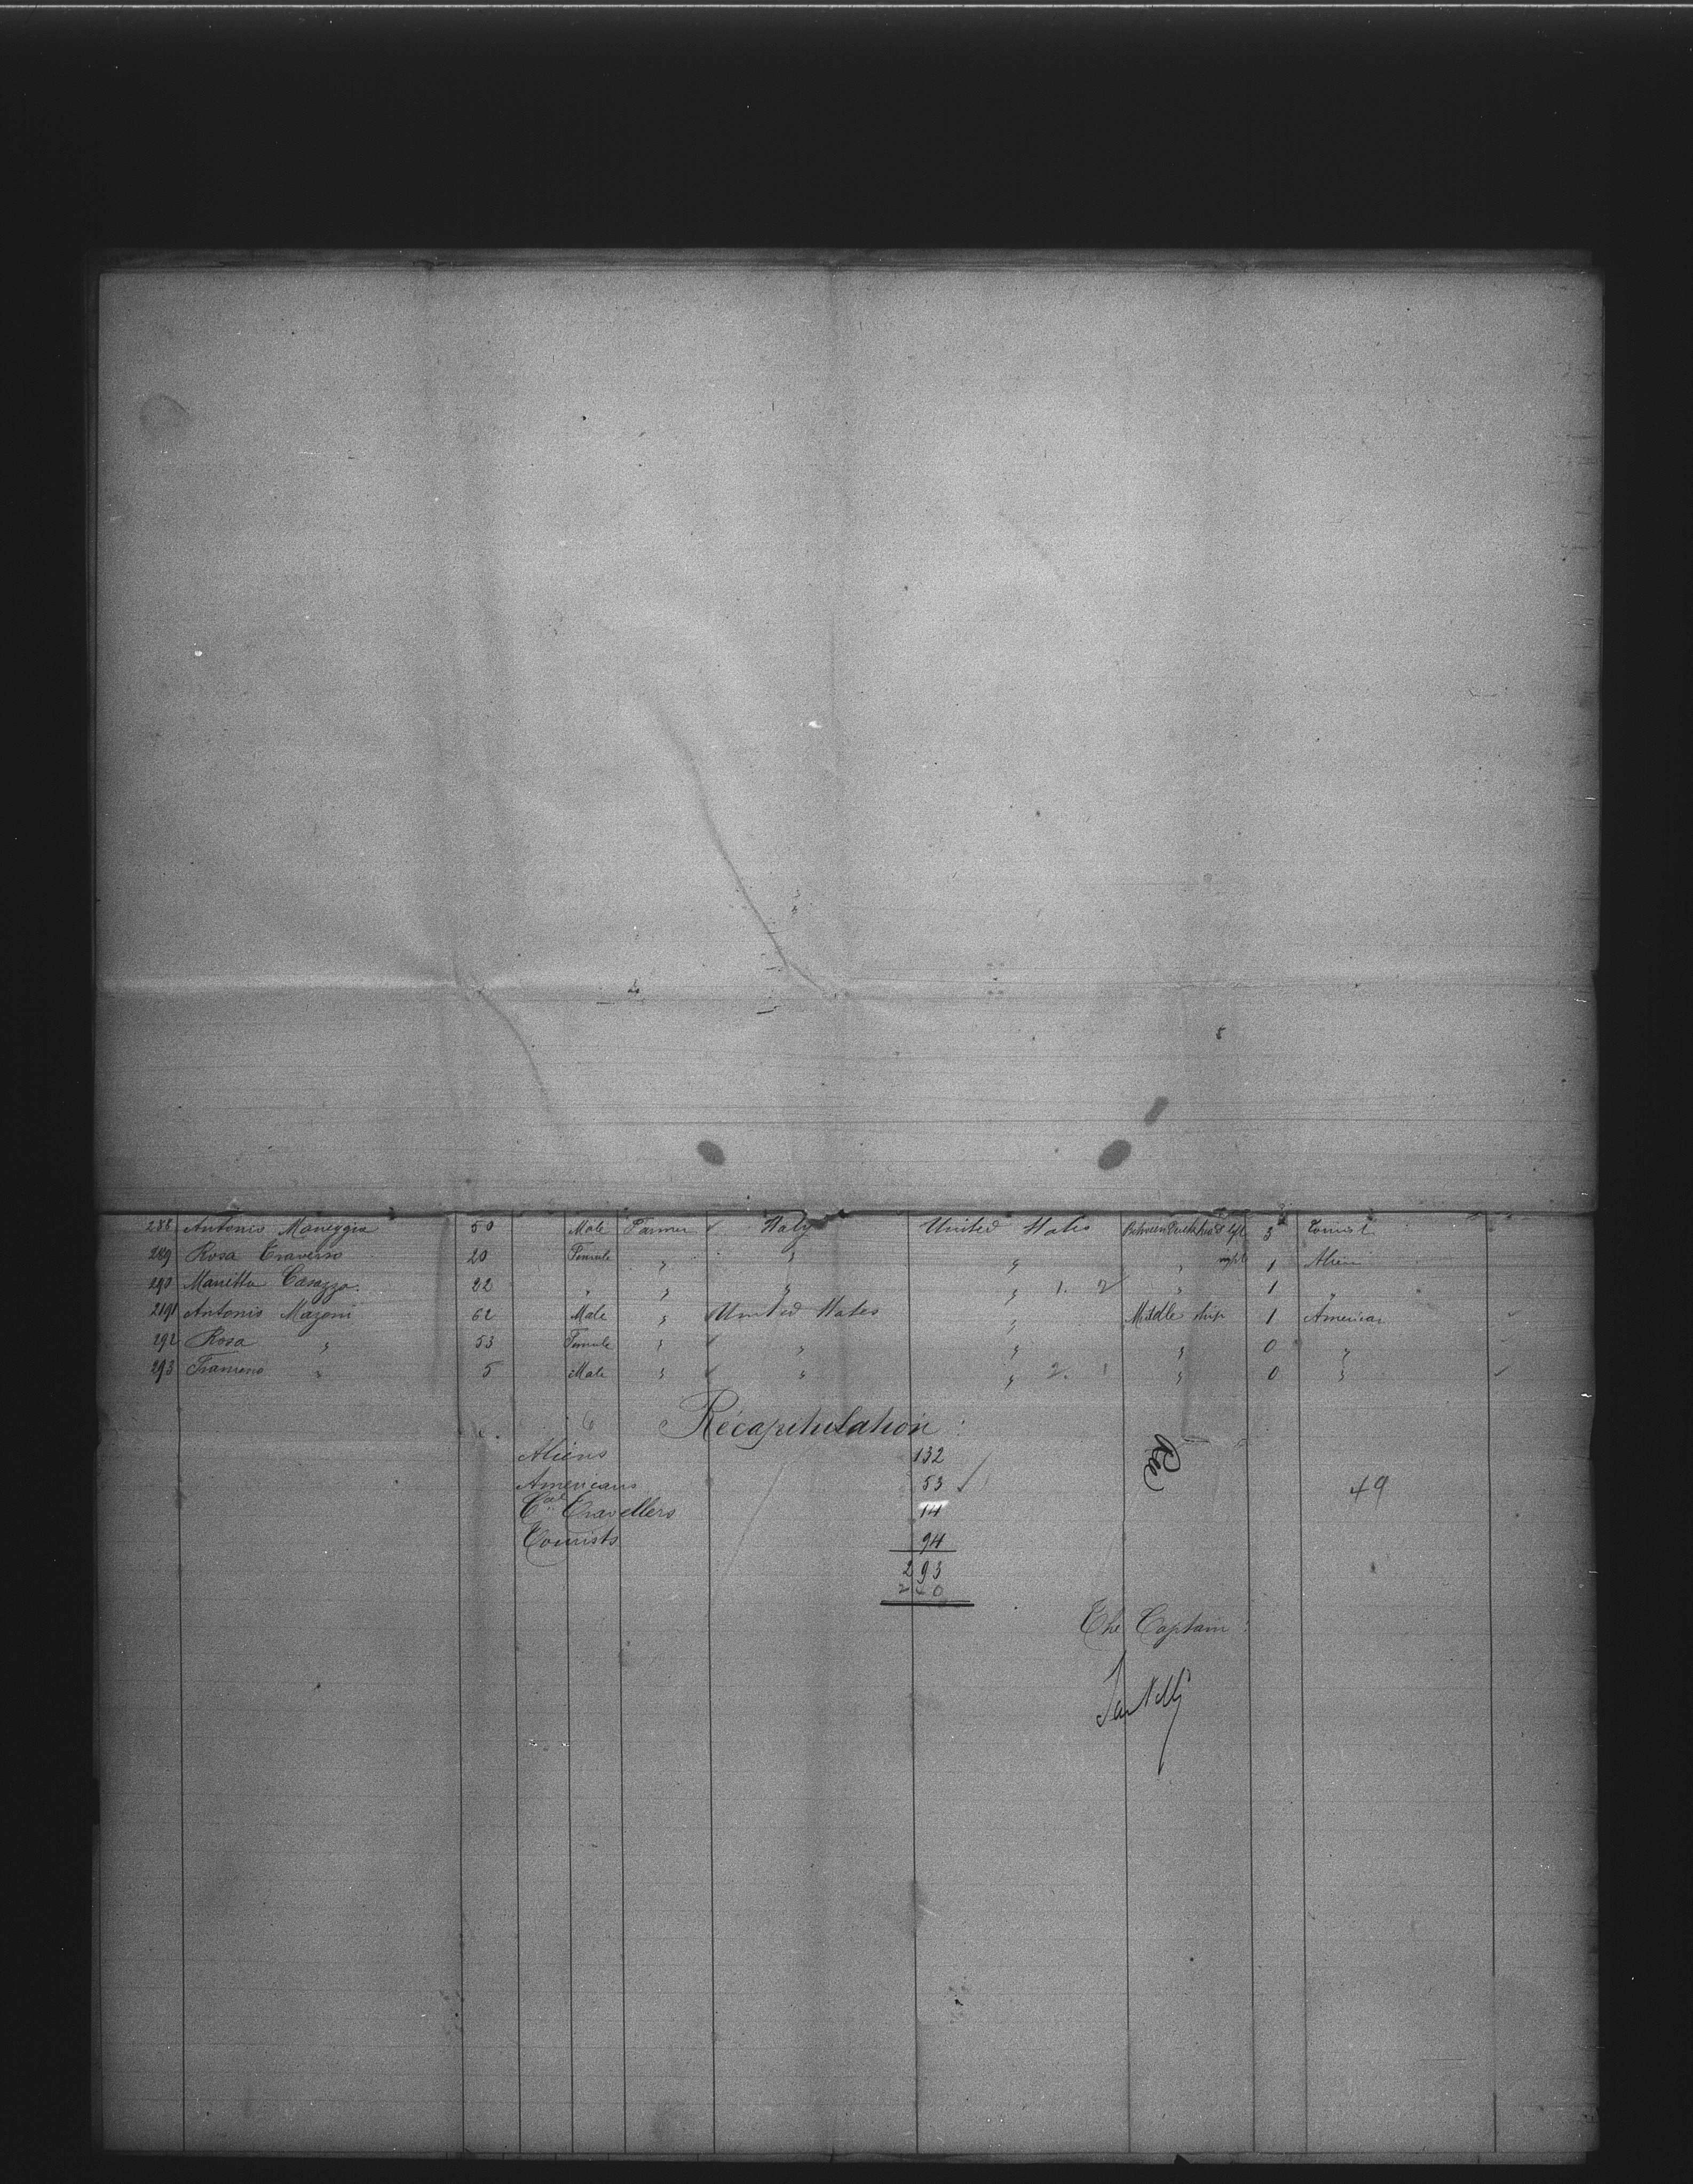 288 Antonio Maneggia 50 Male Farmer Italy United States Between Decks left 3 Tourist
289 Rosa Traverso 20 Female " " " " right 1 Alien
290 Marietta Casazza 22 " " " " 1. 2 " 1 "
291 Antonio Mazoni 62 Male " United States " Middle ship 1 American
292 Rosa " 53 Female " " " " 0 "
293 " 5 Male " " " 2. 1 " 0 "
Recapitulation :
Aliens 132
Americans 53
Travellers 14
49
Tourists 94
293
The Captain :